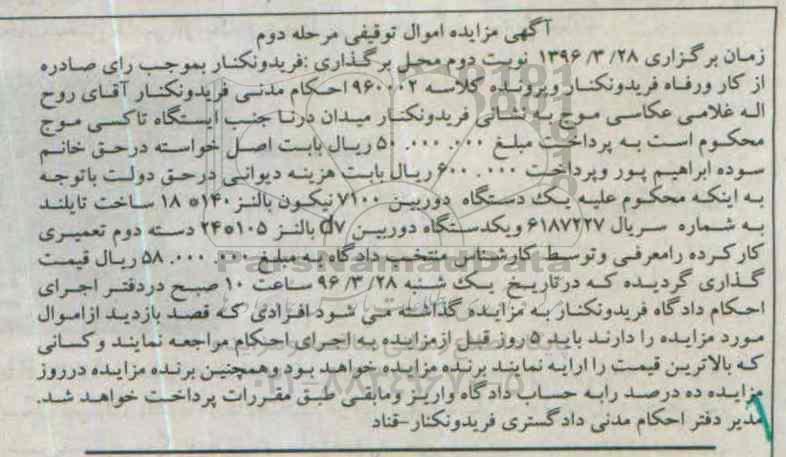 آگهی مزایده اموال توقیفی مرحله دوم
زمان برگزاری ۱۳۹۶/۳/۲۸ نوبت دوم محل برگذاری :فریدونکنار بموجب رای صادره
از کار ورفاه فریدونکنار وپرونده کلاسه ۹۶۰۰۰۲ احکام مدنی فریدونکنار آقای روح
اله غلامی عکاسی موج به نشانی فریدونکنار میدان درنا جنب ایستگاه تاکسی موج
محکوم است به پرداخت مبلغ ۵۰.۰۰۰.۰۰۰ ریال بابت اصل خواسته درحق خانم
سوده ابراهیم پور وپرداخت ۶۰۰.۰۰۰ ریال بابت هزینه دیوانی درحق دولت باتوجه
به اینکه محکوم علیه یک دستگاه دوربین ۷۱۰۰ نیکون بالنز ۱۴۰*۱۸ ساخت تایلند
به شماره سریال ۶۱۸۷۲۲۷ ویکدستگاه دوربین d۷ بالنز ۱۰۵*۲۴ دسته دوم تعمیری
کارکرده رامعرفی وتوسط کارشناس منتخب دادگاه به مبلغ ۵۸.۰۰۰.۰۰۰ ریال قیمت
گذاری گردیده که درتاریخ یک شنبه ۹۶/۳/۲۸ ساعت ۱۰ صبح دردفتر اجرای
احکام دادگاه فریدونکنار به مزایده گذاشته می شود افرادی که قصد بازدید ازاموال
مورد مزایده را دارند باید ۵ روز قبل ازمزایده به اجرای احکام مراجعه نمایند وکسانی
که بالاترین قیمت را ارایه نمایند برنده مزایده خواهد بود وهمچنین برنده مزایده درروز
مزایده ده درصد رابه حساب دادگاه واریز ومابقی طبق مقررات پرداخت خواهد شد.
مدیر دفتر احکام مدنی دادگستری فریدونکنار-قناد
ParsNamadData